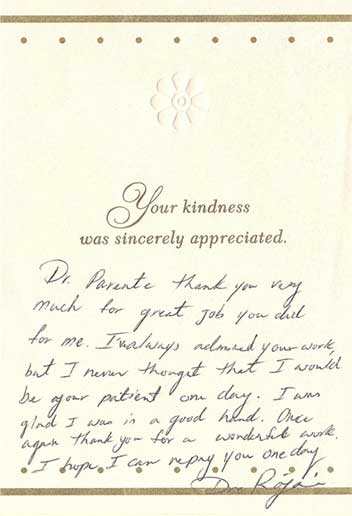 Your kindness
was sincerely appreciated.
Dr. Parente thank you very
much for great job you did
for me. I always admired your work,
but I never thought that I would
be your patient one day. I was
glad I was in a good hand. Once
again thank you for a wonderful work.
I hope I can repay you one day